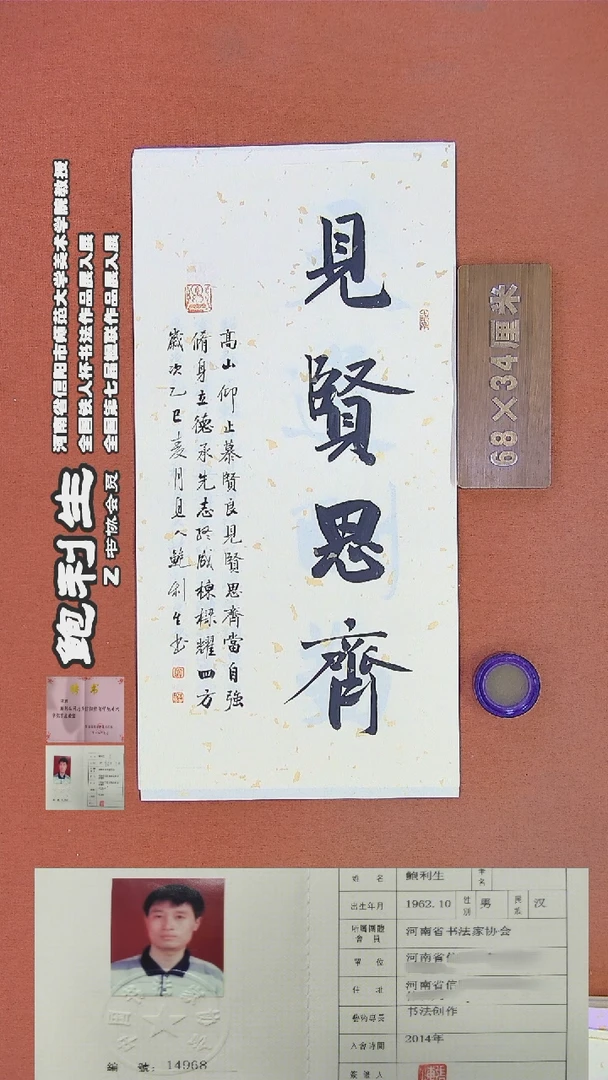 見賢思齊
高山仰止慕賢良見賢思齊當自強
脩身立德承先志終成棟樑耀四方
歲次乙巳夏月息人鮑利生書
68×34厘米
鲍利生
Z书协会员
河南省信阳市商洽大学美术学院教授
全国铁人杯书法作品展入展
全国第七届楹联作品展入展
证书
姓名 鲍利生
出生年月 1962.10 性别 男 民族 汉
所属团体会员 河南省书法家协会
單位 河南省
住址 河南省信
藝術專長 书法创作
入會時間 2014年
簽發人
編號：14968